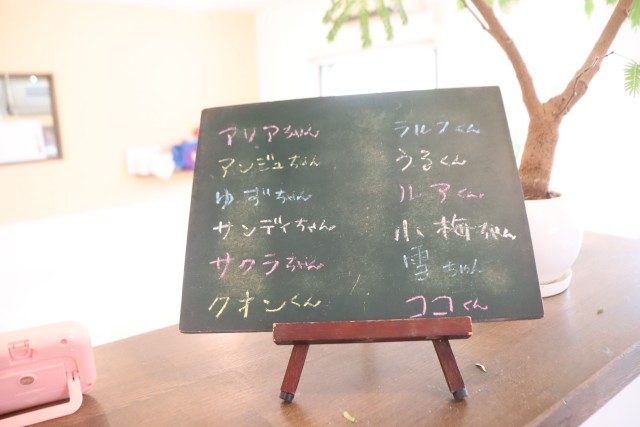 アリアちゃん
アンジュちゃん
ゆずちゃん
サンディちゃん
サクラちゃん
クオンくん
ラルフくん
うるくん
ルアくん
小梅ちゃん
雪ちゃん
ココくん